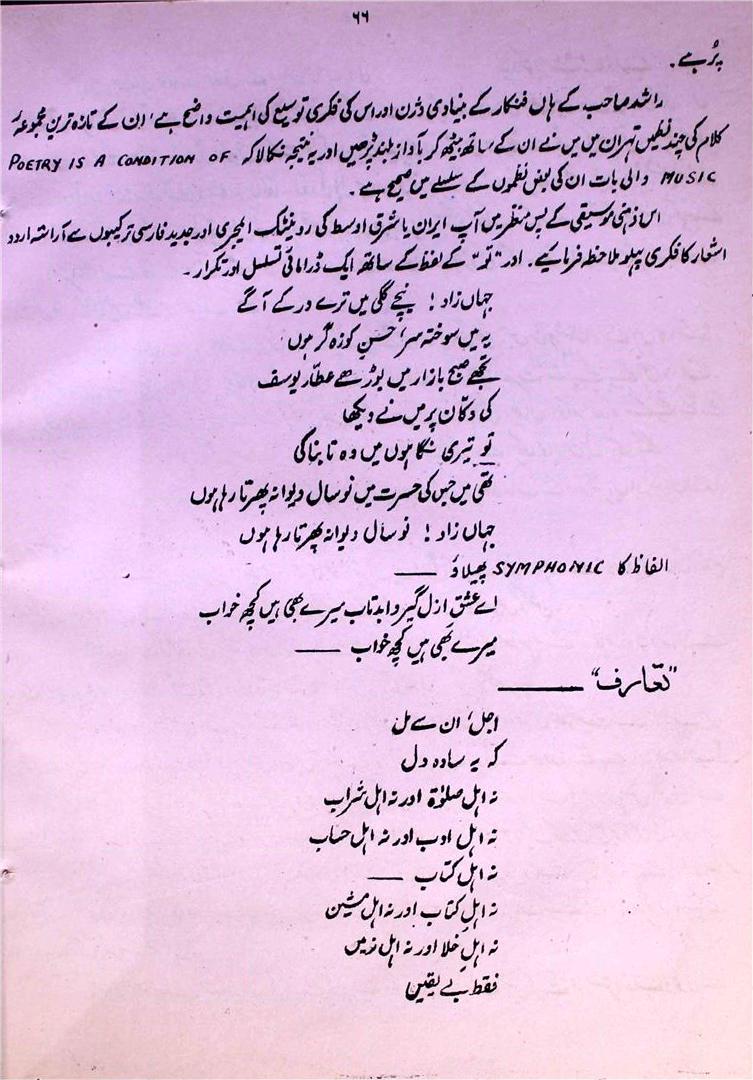 ۶۶
پُر ہے۔
راشد صاحب کے ہاں فنکار کے بنیادی وژن اور اس کی فکری توسیع کی اہمیت واضح ہے، ان کے تازہ ترین مجموعہٴ
کلام کی چند نظمیں تہران میں میں نے ان کے ساتھ بیٹھ کر بآواز بلند پڑھیں اور یہ نتیجہ نکالا کہ POETRY IS A CONDITION OF
MUSIC والی بات ان کی بعض نظموں کے سلسلے میں صحیح ہے۔
اس ذہنی موسیقی کے پس منظر میں آپ ایران یا شرق اوسط کی رومینٹک امیجری اور جدید فارسی ترکیبوں سے آراستہ اردو
اشعار کا فکری پہلو ملاحظہ فرمائیے۔ اور "تو" کے لفظ کے ساتھ ایک ڈرامائی تسلسل اور تکرار۔
جہاں زاد! نیچے گلی میں ترے در کے آگے
یہ میں سوختہ سر، حسن کوزہ گر ہوں
تجھے صبح بازار میں بوڑھے عطّار یوسف
کی دکّان پر میں نے دیکھا
تو تیری نگاہوں میں وہ تابناکی
تھی میں جس کی حسرت میں نو سال دیوانہ پھرتا رہا ہوں
جہاں زاد! نو سال دیوانہ پھرتا رہا ہوں
الفاظ کا SYMPHONIC پھیلاؤ ——
اے عشق ازل گیر و ابد تاب میرے بھی ہیں کچھ خواب
میرے بھی ہیں کچھ خواب ——
"تعارف" ——
اجل، ان سے مل
کہ یہ سادہ دل
نہ اہل صلوٰۃ اور نہ اہل شراب
نہ اہل ادب اور نہ اہل حساب
نہ اہل کتاب ——
نہ اہل کتاب اور نہ اہل مشین
نہ اہل خلا اور نہ اہل زمیں
فقط بے یقین